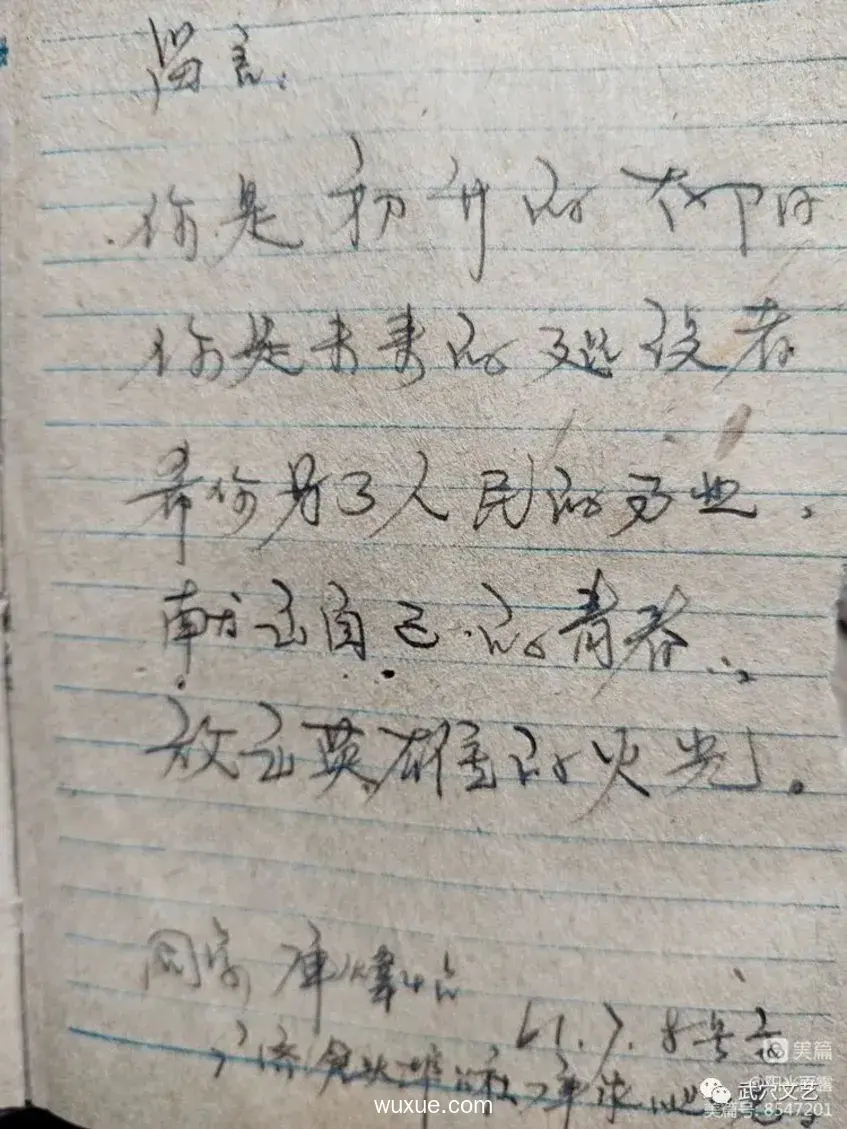 留言:
你是初升的太阳
你是未来的建设者
希你为了人民的事业,
献出自己的青春,
放出英雄的火光。
同窗
61.7.8号
美篇
@阳光
武穴文艺
wuxue.com
美篇号:8547201